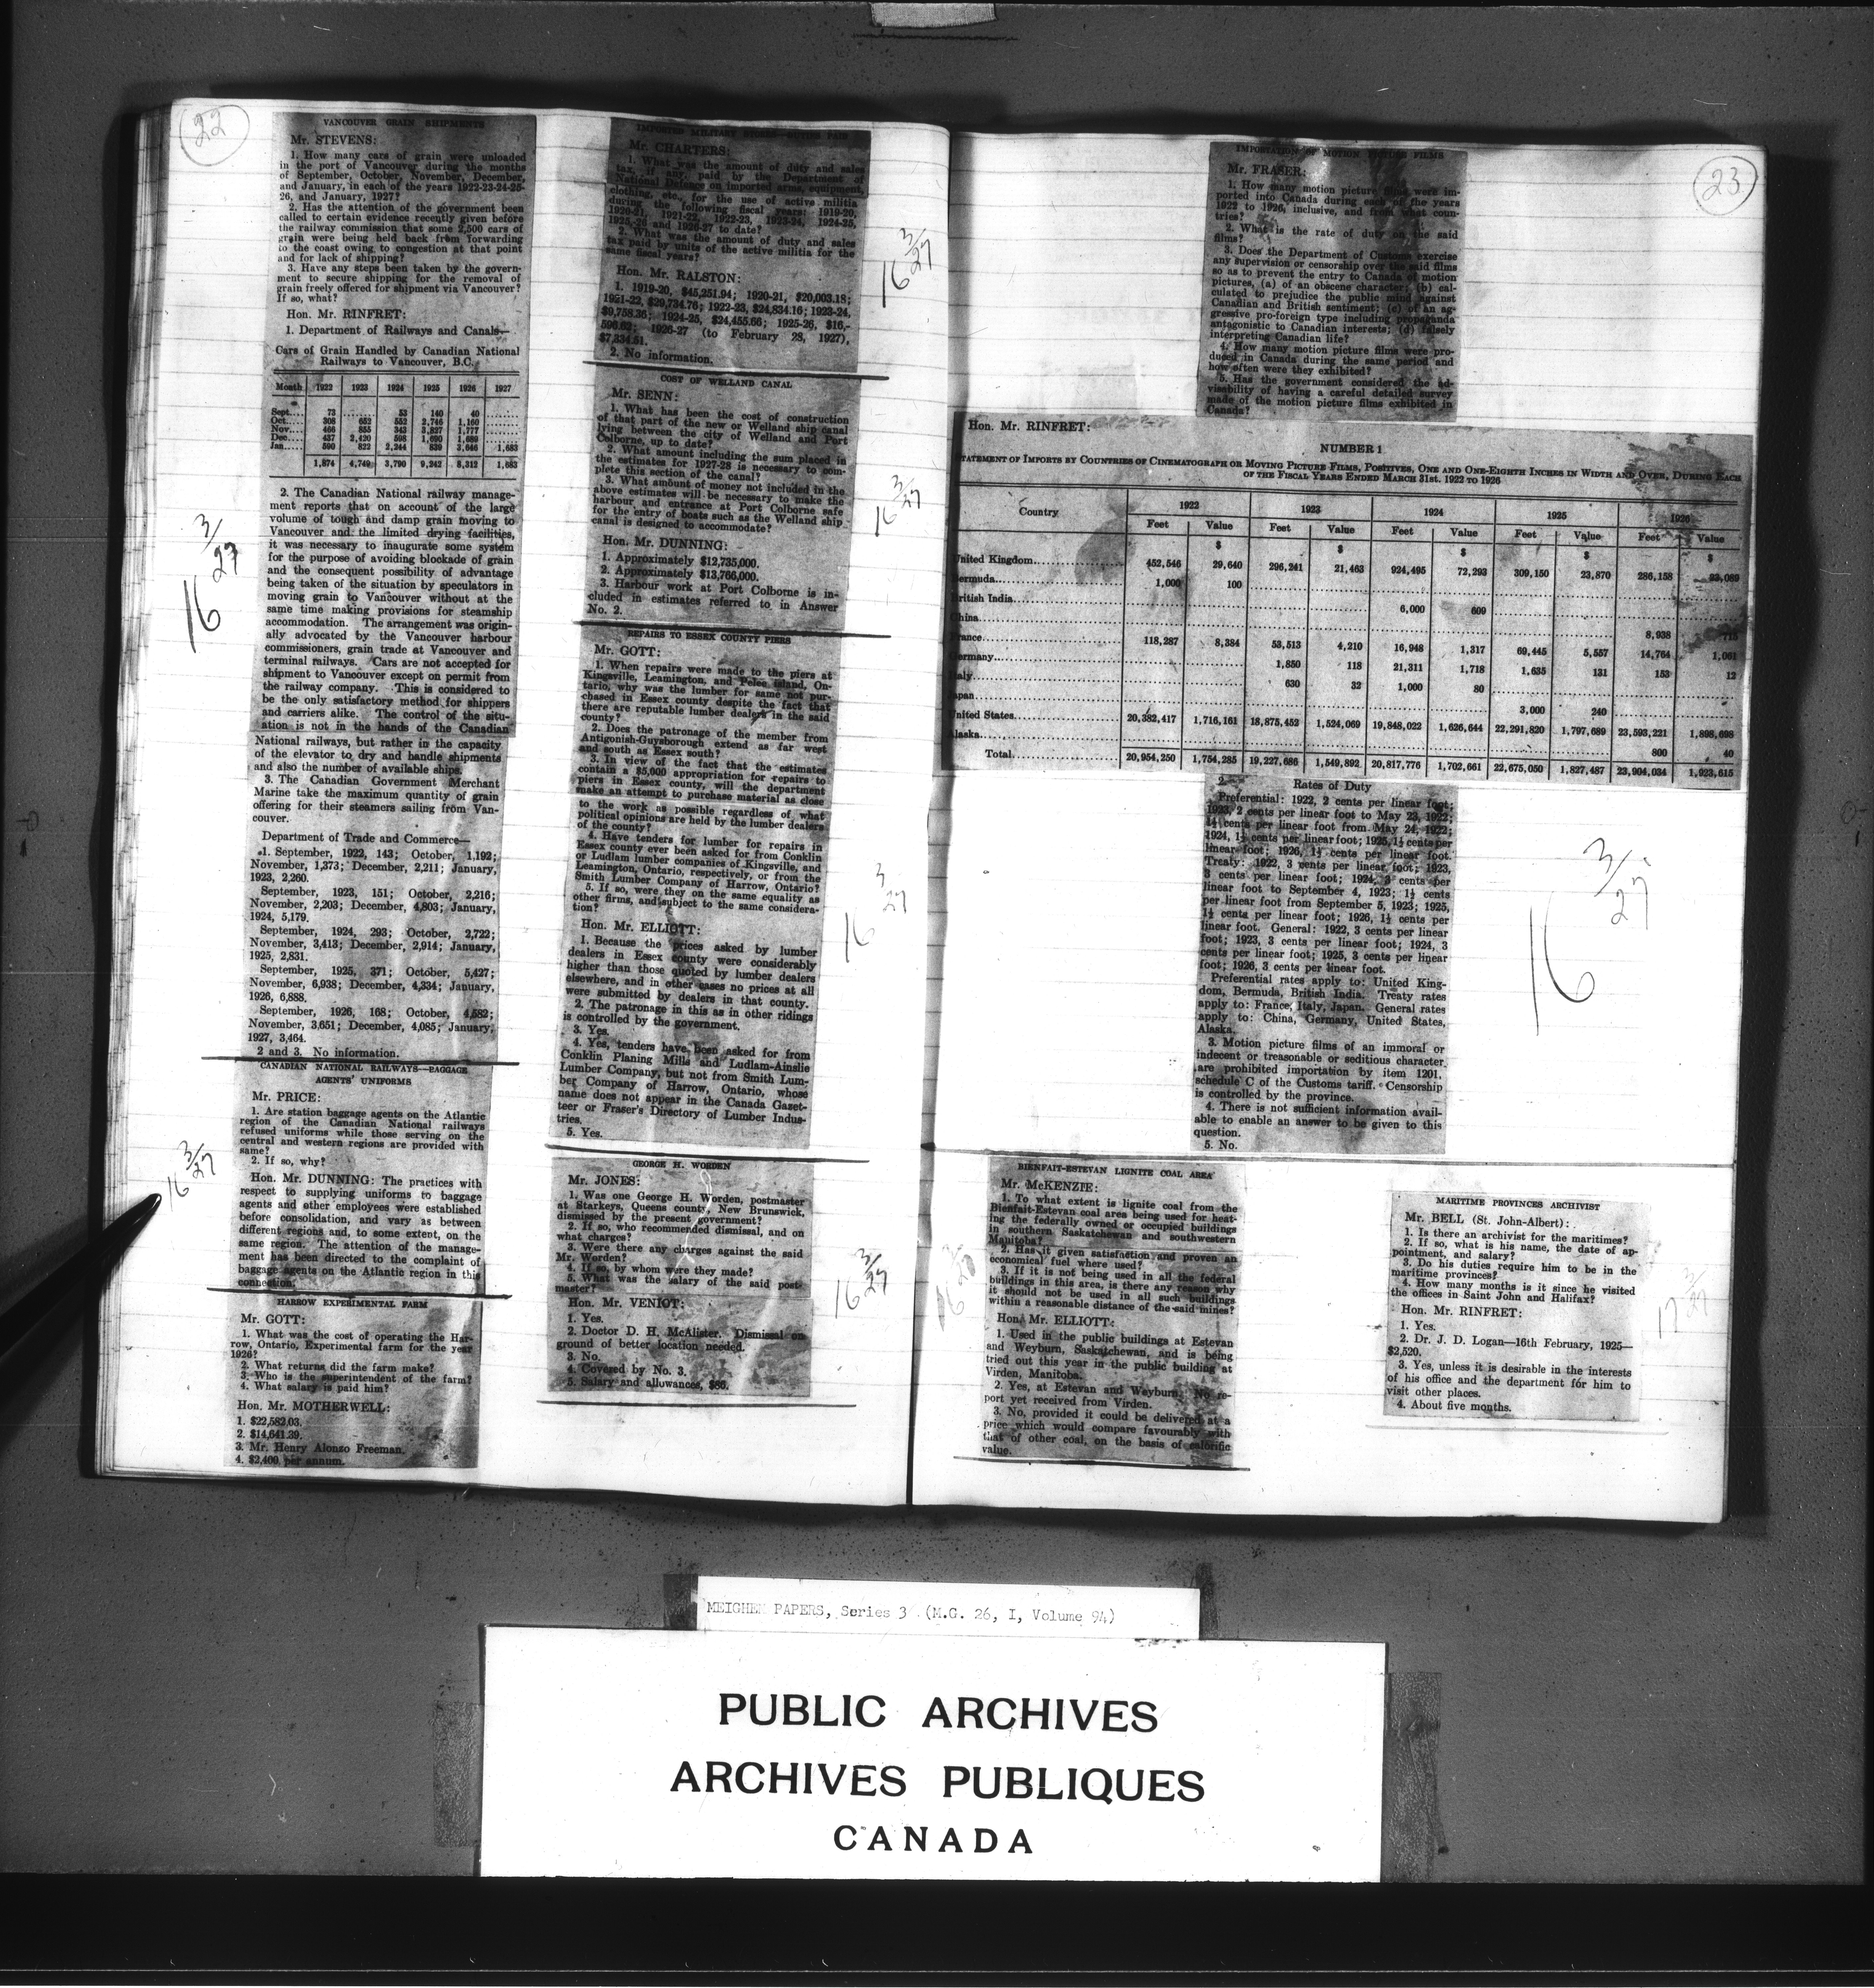 22
VANCOUVER GRAIN SHIPMENTS
Mr. STEVENS:
1. How many cars of grain were unloaded
in the port of Vancouver during the months
of September, October, November, December,
and January, in each of the years 1922-23-24-25-
26, and January, 1927?
2. Has the attention of the government been
called to certain evidence recently given before
the railway commission that some 2,500 cars of
grain were being held back from forwarding
to the coast owing to congestion at that point
and for lack of shipping?
3. Have any steps been taken by the govern-
ment to secure shipping for the removal of
grain freely offered for shipment via Vancouver?
If so, what?
Hon. Mr. RINFRET:
1. Department of Railways and Canals—
Cars of Grain Handled by Canadian National
Railways to Vancouver, B.C.
Month 1922 1923 1924 1925 1926 1927
Sept.... 73 ...... 53 140 40 ......
Oct..... 308 652 552 2,746 1,160 ......
Nov..... 466 855 343 3,827 1,777 ......
Dec..... 437 2,420 598 1,690 1,689 ......
Jan..... 590 822 2,244 839 3,646 1,683
1,874 4,749 3,790 9,242 8,312 1,683
2. The Canadian National railway manage-
ment reports that on account of the large
volume of tough and damp grain moving to
Vancouver and the limited drying facilities,
it was necessary to inaugurate some system
for the purpose of avoiding blockade of grain
and the consequent possibility of advantage
being taken of the situation by speculators in
moving grain to Vancouver without at the
same time making provisions for steamship
accommodation. The arrangement was origin-
ally advocated by the Vancouver harbour
commissioners, grain trade at Vancouver and
terminal railways. Cars are not accepted for
shipment to Vancouver except on permit from
the railway company. This is considered to
be the only satisfactory method for shippers
and carriers alike. The control of the situ-
ation is not in the hands of the Canadian
National railways, but rather in the capacity
of the elevator to dry and handle shipments
and also the number of available ships.
3. The Canadian Government Merchant
Marine take the maximum quantity of grain
offering for their steamers sailing from Van-
couver.
Department of Trade and Commerce—
1. September, 1922, 143; October, 1,192;
November, 1,373; December, 2,211; January,
1923, 2,260.
September, 1923, 151; October, 2,216;
November, 2,203; December, 4,803; January,
1924, 5,179.
September, 1924, 293; October, 2,722;
November, 3,413; December, 2,914; January,
1925, 2,831.
September, 1925, 371; October, 5,427;
November, 6,938; December, 4,334; January,
1926, 6,888.
September, 1926, 168; October, 4,582;
November, 3,651; December, 4,085; January,
1927, 3,464.
2 and 3. No information.
16 3/27
CANADIAN NATIONAL RAILWAYS—BAGGAGE
AGENTS' UNIFORMS
Mr. PRICE:
1. Are station baggage agents on the Atlantic
region of the Canadian National railways
refused uniforms while those serving on the
central and western regions are provided with
same?
2. If so, why?
Hon. Mr. DUNNING: The practices with
respect to supplying uniforms to baggage
agents and other employees were established
before consolidation, and vary as between
different regions and, to some extent, on the
same region. The attention of the manage-
ment has been directed to the complaint of
baggage agents on the Atlantic region in this
connection.
16 3/27
HARROW EXPERIMENTAL FARM
Mr. GOTT:
1. What was the cost of operating the Har-
row, Ontario, Experimental farm for the year
1926?
2. What returns did the farm make?
3. Who is the superintendent of the farm?
4. What salary is paid him?
Hon. Mr. MOTHERWELL:
1. $22,582.03.
2. $14,641.39.
3. Mr. Henry Alonzo Freeman.
4. $2,400 per annum.
IMPORTED MILITARY STORES—DUTIES PAID
Mr. CHARTERS:
1. What was the amount of duty and sales
tax, if any, paid by the Department of
National Defence on imported arms, equipment,
clothing, etc., for the use of active militia
during the following fiscal years: 1919-20,
1920-21, 1921-22, 1922-23, 1923-24, 1924-25,
1925-26 and 1926-27 to date?
2. What was the amount of duty and sales
tax paid by units of the active militia for the
same fiscal years?
Hon. Mr. RALSTON:
1. 1919-20, $45,251.94; 1920-21, $20,003.18;
1921-22, $29,734.76; 1922-23, $24,834.16; 1923-24,
$9,758.36; 1924-25, $24,455.66; 1925-26, $16,-
596.62; 1926-27 (to February 28, 1927),
$7,334.51.
2. No information.
16 3/27
COST OF WELLAND CANAL
Mr. SENN:
1. What has been the cost of construction
of that part of the new or Welland ship canal
lying between the city of Welland and Port
Colborne, up to date?
2. What amount including the sum placed in
the estimates for 1927-28 is necessary to com-
plete this section of the canal?
3. What amount of money not included in the
above estimates will be necessary to make the
harbour and entrance at Port Colborne safe
for the entry of boats such as the Welland ship
canal is designed to accommodate?
Hon. Mr. DUNNING:
1. Approximately $12,735,000.
2. Approximately $13,766,000.
3. Harbour work at Port Colborne is in-
cluded in estimates referred to in Answer
No. 2.
16 3/27
REPAIRS TO ESSEX COUNTY PIERS
Mr. GOTT:
1. When repairs were made to the piers at
Kingsville, Leamington, and Pelee Island, On-
tario, why was the lumber for same not pur-
chased in Essex county despite the fact that
there are reputable lumber dealers in the said
county?
2. Does the patronage of the member from
Antigonish-Guysborough extend as far west
and south as Essex south?
3. In view of the fact that the estimates
contain a $5,000 appropriation for repairs to
piers in Essex county, will the department
make an attempt to purchase material as close
to the work as possible regardless of what
political opinions are held by the lumber dealers
of the county?
4. Have tenders for lumber for repairs in
Essex county ever been asked for from Conklin
or Ludlam lumber companies of Kingsville, and
Leamington, Ontario, respectively, or from the
Smith Lumber Company of Harrow, Ontario?
5. If so, were they on the same equality as
other firms, and subject to the same considera-
tion?
Hon. Mr. ELLIOTT:
1. Because the prices asked by lumber
dealers in Essex county were considerably
higher than those quoted by lumber dealers
elsewhere, and in other cases no prices at all
were submitted by dealers in that county.
2. The patronage in this as in other ridings
is controlled by the government.
3. Yes.
4. Yes, tenders have been asked for from
Conklin Planing Mills and Ludlam-Ainslie
Lumber Company, but not from Smith Lum-
ber Company of Harrow, Ontario, whose
name does not appear in the Canada Gazet-
teer or Fraser's Directory of Lumber Indus-
tries.
5. Yes.
16 3/27
GEORGE H. WORDEN
Mr. JONES:
1. Was one George H. Worden, postmaster
at Starkeys, Queens county, New Brunswick,
dismissed by the present government?
2. If so, who recommended dismissal, and on
what charges?
3. Were there any charges against the said
Mr. Worden?
4. If so, by whom were they made?
5. What was the salary of the said post-
master?
Hon. Mr. VENIOT:
1. Yes.
2. Doctor D. H. McAlister. Dismissal on
ground of better location needed.
3. No.
4. Covered by No. 3.
5. Salary and allowances, $86.
16 3/27
23
IMPORTATION OF MOTION PICTURE FILMS
Mr. FRASER:
1. How many motion picture films were im-
ported into Canada during each of the years
1922 to 1926, inclusive, and from what coun-
tries?
2. What is the rate of duty on the said
films?
3. Does the Department of Customs exercise
any supervision or censorship over the said films
so as to prevent the entry to Canada of motion
pictures, (a) of an obscene character; (b) cal-
culated to prejudice the public mind against
Canadian and British sentiment; (c) of an ag-
gressive pro-foreign type including propaganda
antagonistic to Canadian interests; (d) falsely
interpreting Canadian life?
4. How many motion picture films were pro-
duced in Canada during the same period and
how often were they exhibited?
5. Has the government considered the ad-
visability of having a careful detailed survey
made of the motion picture films exhibited in
Canada?
Hon. Mr. RINFRET:
NUMBER 1
STATEMENT OF IMPORTS BY COUNTRIES OF CINEMATOGRAPH OR MOVING PICTURE FILMS, POSITIVES, ONE AND ONE-EIGHTH INCHES IN WIDTH AND OVER, DURING EACH
OF THE FISCAL YEARS ENDED MARCH 31ST. 1922 TO 1926
Country 1922 1923 1924 1925 1926
Feet Value Feet Value Feet Value Feet Value Feet Value
$ $ $ $ $
United Kingdom 452,546 29,640 296,241 21,463 924,495 72,293 309,150 23,870 286,158 23,089
Bermuda 1,000 100
British India 6,000 609
China 8,938
France 118,287 8,384 53,513 4,210 16,948 1,317 69,445 5,557 14,764 1,061
Germany 1,850 118 21,311 1,718 1,635 131 153 12
Italy 630 32 1,000 80
Japan 3,000 240
United States 20,382,417 1,716,161 18,875,452 1,524,069 19,848,022 1,626,644 22,291,820 1,797,689 23,593,221 1,898,698
Alaska 800 40
Total 20,954,250 1,754,285 19,227,686 1,549,892 20,817,776 1,702,661 22,675,050 1,827,487 23,904,034 1,923,615
2. Rates of Duty
Preferential: 1922, 2 cents per linear foot;
1923, 2 cents per linear foot to May 23, 1922;
1½ cents per linear foot from May 24, 1922;
1924, 1½ cents per linear foot; 1925, 1½ cents per
linear foot; 1926, 1½ cents per linear foot.
Treaty: 1922, 3 cents per linear foot; 1923,
3 cents per linear foot; 1924, 3 cents per
linear foot to September 4, 1923; 1½ cents
per linear foot from September 5, 1923; 1925,
1½ cents per linear foot; 1926, 1½ cents per
linear foot. General: 1922, 3 cents per linear
foot; 1923, 3 cents per linear foot; 1924, 3
cents per linear foot; 1925, 3 cents per linear
foot; 1926, 3 cents per linear foot.
Preferential rates apply to: United King-
dom, Bermuda, British India. Treaty rates
apply to: France, Italy, Japan. General rates
apply to: China, Germany, United States,
Alaska.
3. Motion picture films of an immoral or
indecent or treasonable or seditious character
are prohibited importation by item 1201,
schedule C of the Customs tariff. Censorship
is controlled by the province.
4. There is not sufficient information avail-
able to enable an answer to be given to this
question.
5. No.
16 3/27
BIENFAIT-ESTEVAN LIGNITE COAL AREA
Mr. McKENZIE:
1. To what extent is lignite coal from the
Bienfait-Estevan coal area being used for heat-
ing the federally owned or occupied buildings
in southern Saskatchewan and southwestern
Manitoba?
2. Has it given satisfaction and proven an
economical fuel where used?
3. If it is not being used in all the federal
buildings in this area, is there any reason why
it should not be used in all such buildings
within a reasonable distance of the said mines?
Hon. Mr. ELLIOTT:
1. Used in the public buildings at Estevan
and Weyburn, Saskatchewan, and is being
tried out this year in the public building at
Virden, Manitoba.
2. Yes, at Estevan and Weyburn. No re-
port yet received from Virden.
3. No, provided it could be delivered at a
price which would compare favourably with
that of other coal, on the basis of calorific
value.
MARITIME PROVINCES ARCHIVIST
Mr. BELL (St. John-Albert):
1. Is there an archivist for the maritimes?
2. If so, what is his name, the date of ap-
pointment, and salary?
3. Do his duties require him to be in the
maritime provinces?
4. How many months is it since he visited
the offices in Saint John and Halifax?
Hon. Mr. RINFRET:
1. Yes.
2. Dr. J. D. Logan—16th February, 1925—
$2,520.
3. Yes, unless it is desirable in the interests
of his office and the department for him to
visit other places.
4. About five months.
17 3/27
MEIGHEN PAPERS, Series 3 (M.G. 26, I, Volume 94)
PUBLIC ARCHIVES
ARCHIVES PUBLIQUES
CANADA